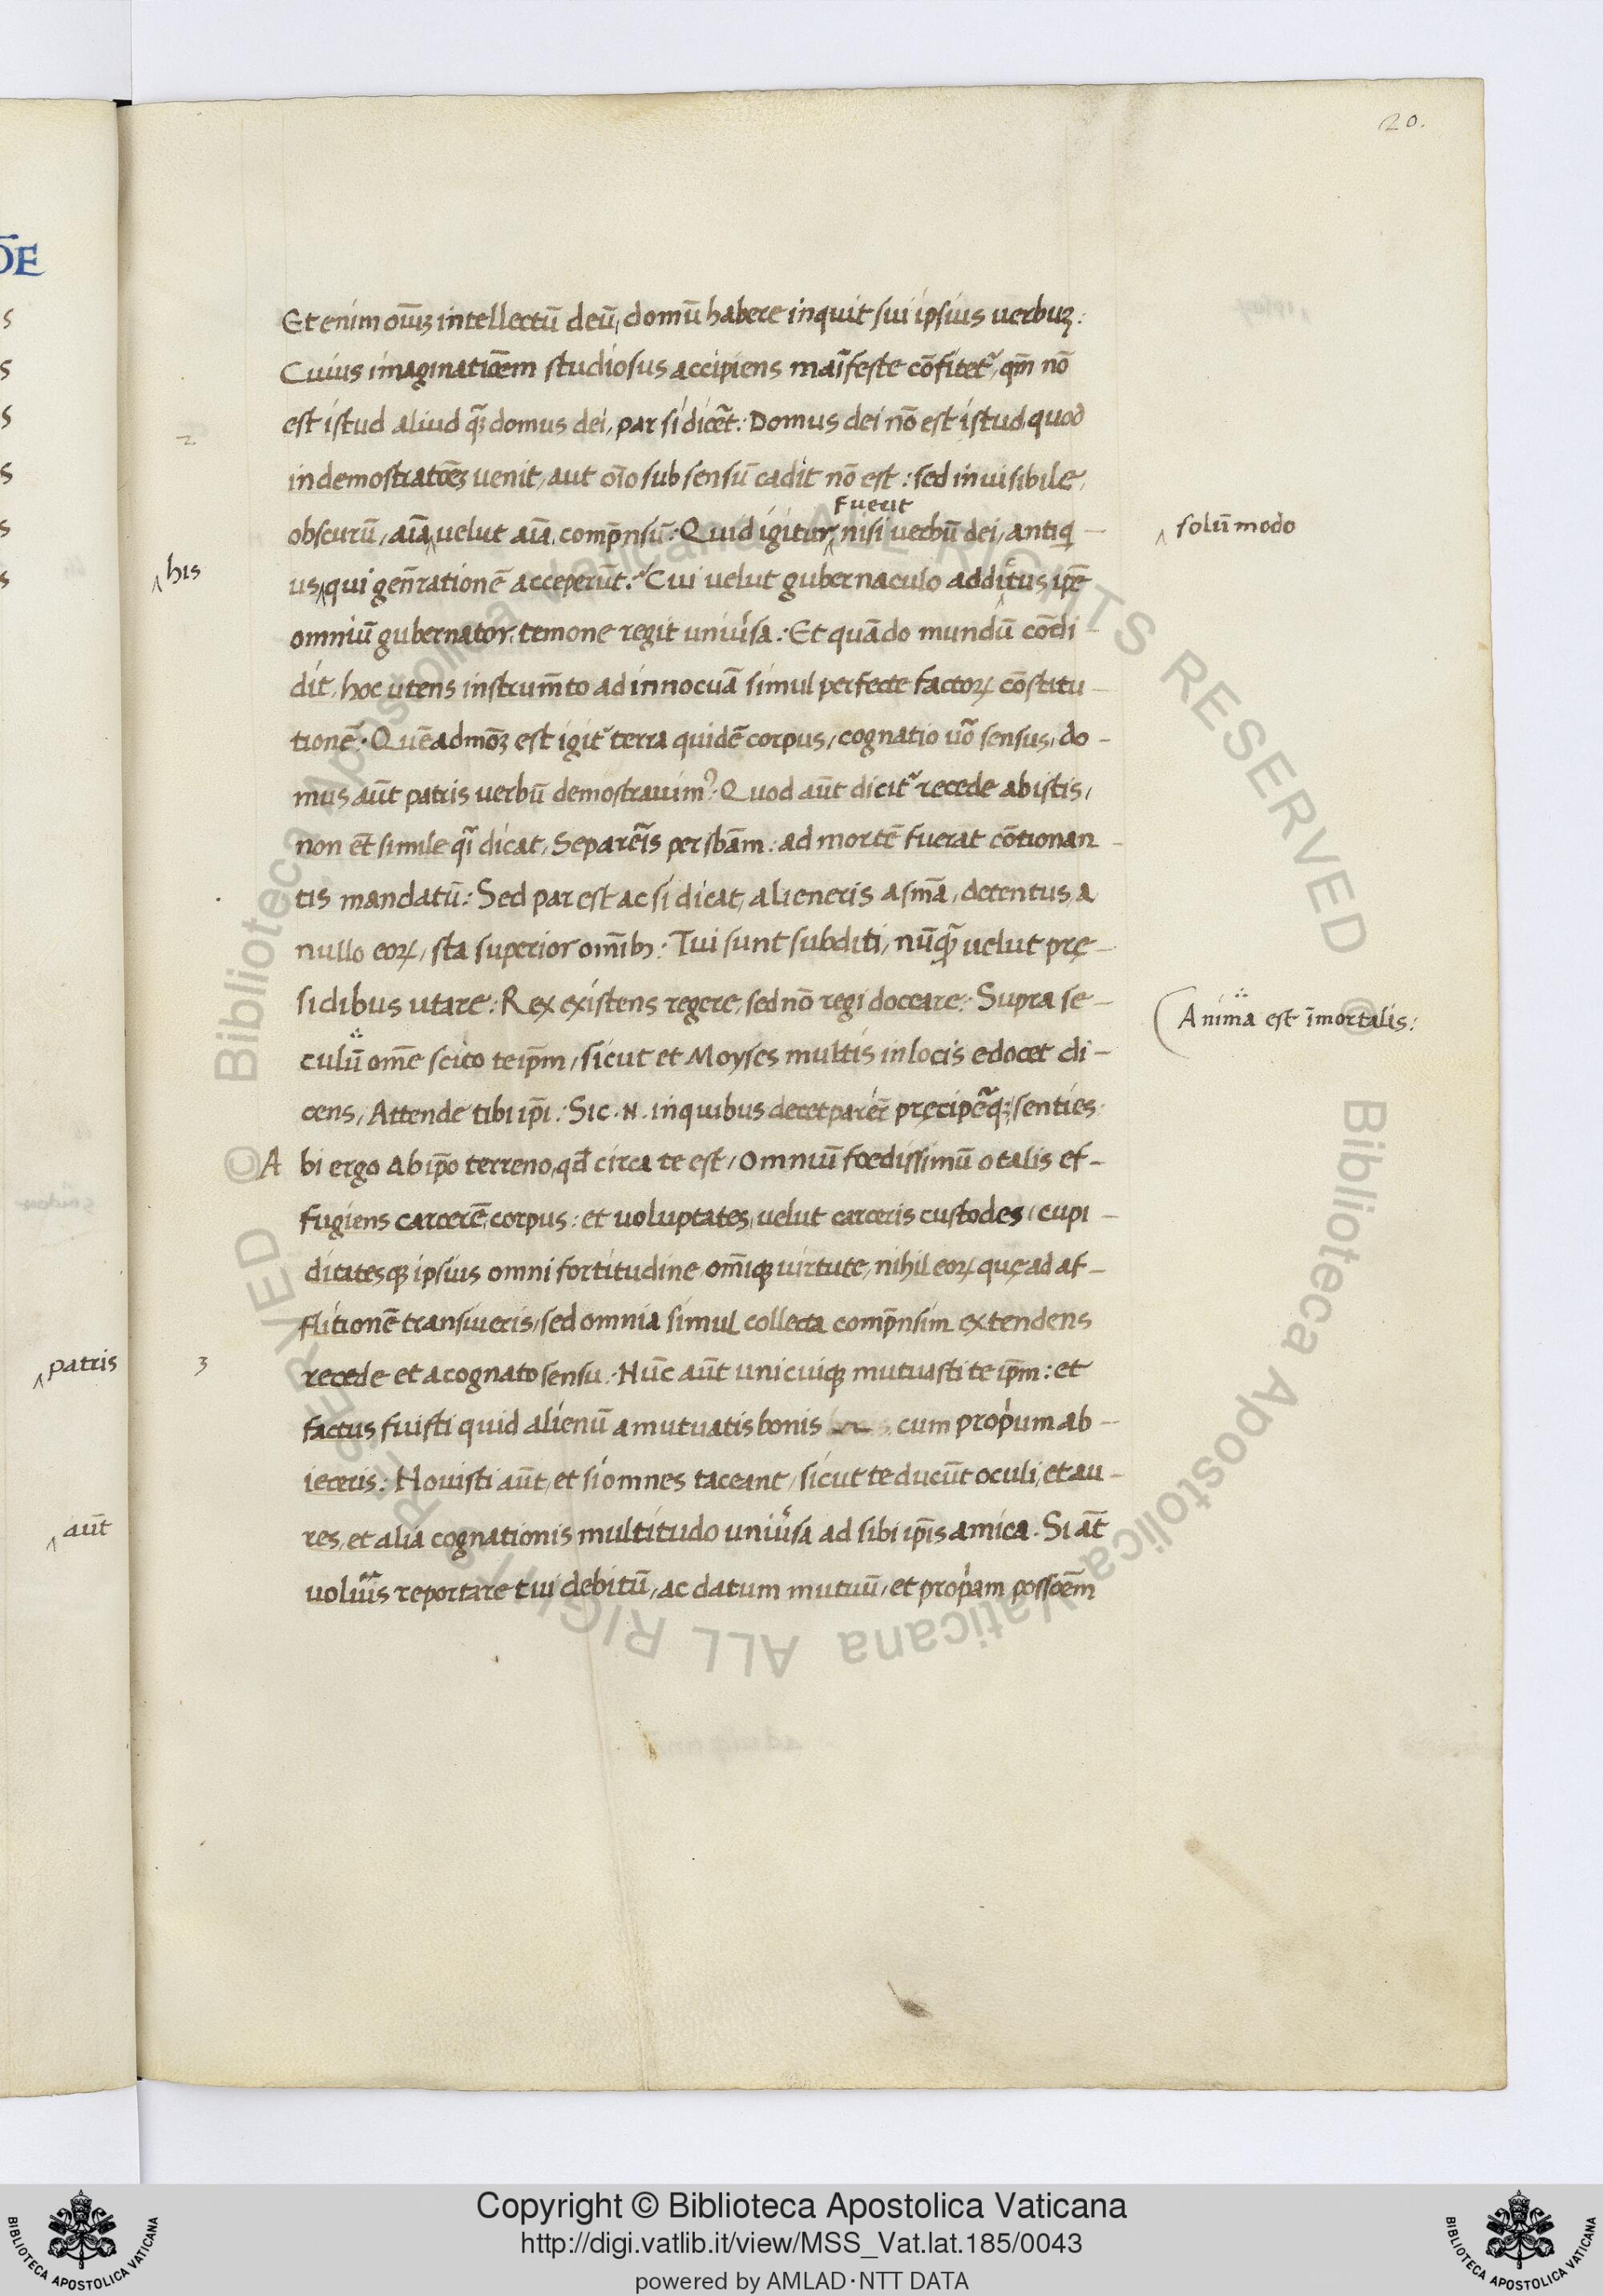 20.
DE
Et enim oīūꝫ intellectū deū, domū habere inquit sui ipsius uerbuꝫ:
Cuius imaginatiōem studiosus accipiens maīfeste cōfitet᷑, qm̄ nō
est istud aliud q̄ꝫ domus dei, par si dicēt: Domus dei nō est istud quod
in demostratōeꝫ uenit, aut oīo sub sensū cadit nō est: sed inuisibile,
fuerit
obscurū, aīa‸ uelut aīa comp̄nsū: Quid igitur‸ nisi uerbū dei, antiq –
‸ solūmodo
‸ his
us‸ qui gen̄rationē acceperūt: Cui uelut gubernaculo additus ip̄e
omniū gubernator, temone regit uniu͛sa: Et quādo mundū cōdi –
dit, hoc utens instrum̄to ad innocuā simul perfecte factoꝝ cōstitu –
tionē: Quēadmōꝫ est igit᷑ terra quidē corpus, cognatio ūo sensus, do –
mus aūt patris uerbū demostrauimꝰ: Quod aūt dicit᷑ recede ab istis,
non ēt simile q̄i dicat, separēīs per sb̄am: ad mortē fuerat cōtionan –
tis mandatū: Sed par est ac si dicat, alieneris a sm̄a, detentus, a
nullo eoꝝ, sta superior om̄ibꝫ: Tui sunt subditi, nūq̄ꝫ uelut prę –
sidibus utare: Rex existens regere, sed nō regi doceare: Supra se –
culū om̄e scito te ip̄m, sicut et Moyses multis in locis edocet di –
(Anima est īmortalis:
cens, Attende tibi ip̄i: Sic .N. in quibus decet parēr̄ pręcipēq̄ꝫ, senties:
A bi ergo ab ip̄o terreno, qđ circa te est, omniū foedissimū o talis ef –
fugiens carcerē, corpus: et uoluptates, uelut carceris custodes, cupi –
ditatesqꝫ ipsius omni fortitudine om̄iqꝫ uirtute, nihil eoꝝ quę ad af –
flitionē transiueris, sed omnia simul collecta comp̄nsim extendens
‸ patris
3
recede et a cognato sensu: Nūc aūt unicuiqꝫ mutuasti te ip̄m: et
factus fuisti quid alienū a mutuatis bonis cum propium ab –
ieceris: Nouisti aūt, et si omnes taceant, sicut te ducūt oculi, et au –
‸ aūt
res, et alia cognationis multitudo uniu͛sa ad sibi ip̄is amica. Si at̄
uolu͛is reportare tui debitū, ac datum mutuū, et propiam possōem
© Biblioteca Apostolica Vaticana ALL RIGHTS RESERVED © Biblioteca Apostolica Vaticana ALL RIGHTS RESERVED
BIBLIOTECA APOSTOLICA VATICANA
Copyright © Biblioteca Apostolica Vaticana
http://digi.vatlib.it/view/MSS_Vat.lat.185/0043
powered by AMLAD·NTT DATA
BIBLIOTECA APOSTOLICA VATICANA